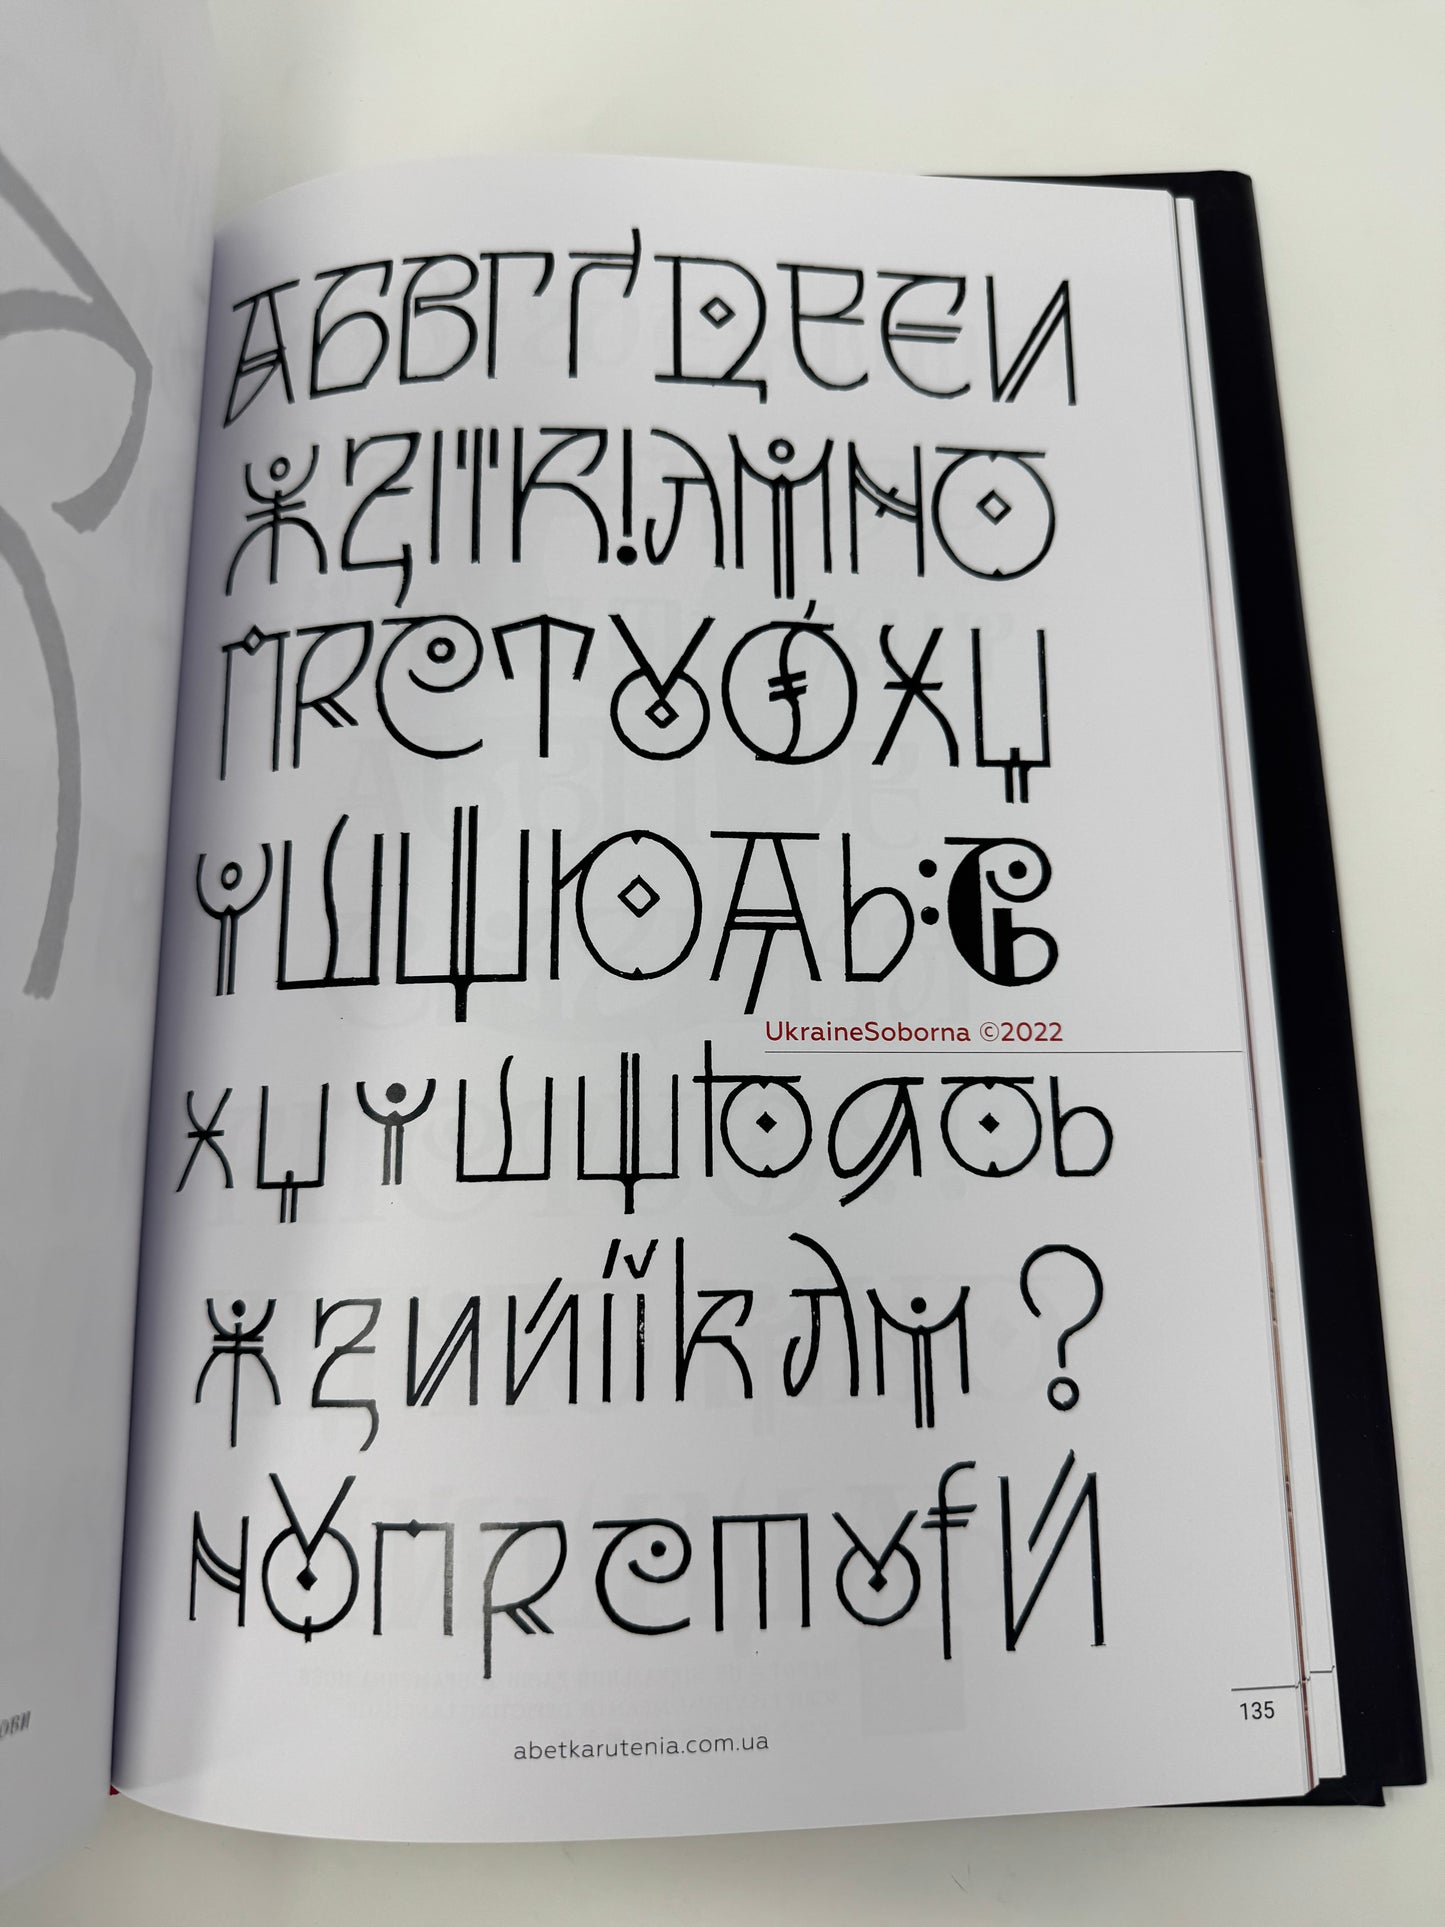 АБВГҐДЕЄИ
ЖЗІЇК!ЛМНО
ПРСТУФХЦ
ЧШЩЮЯЬ:
UkraineSoborna ©2022
хцчшщюяоь
жзийіїклм?
нупрстуфЙ
135
abetkarutenia.com.ua
ови